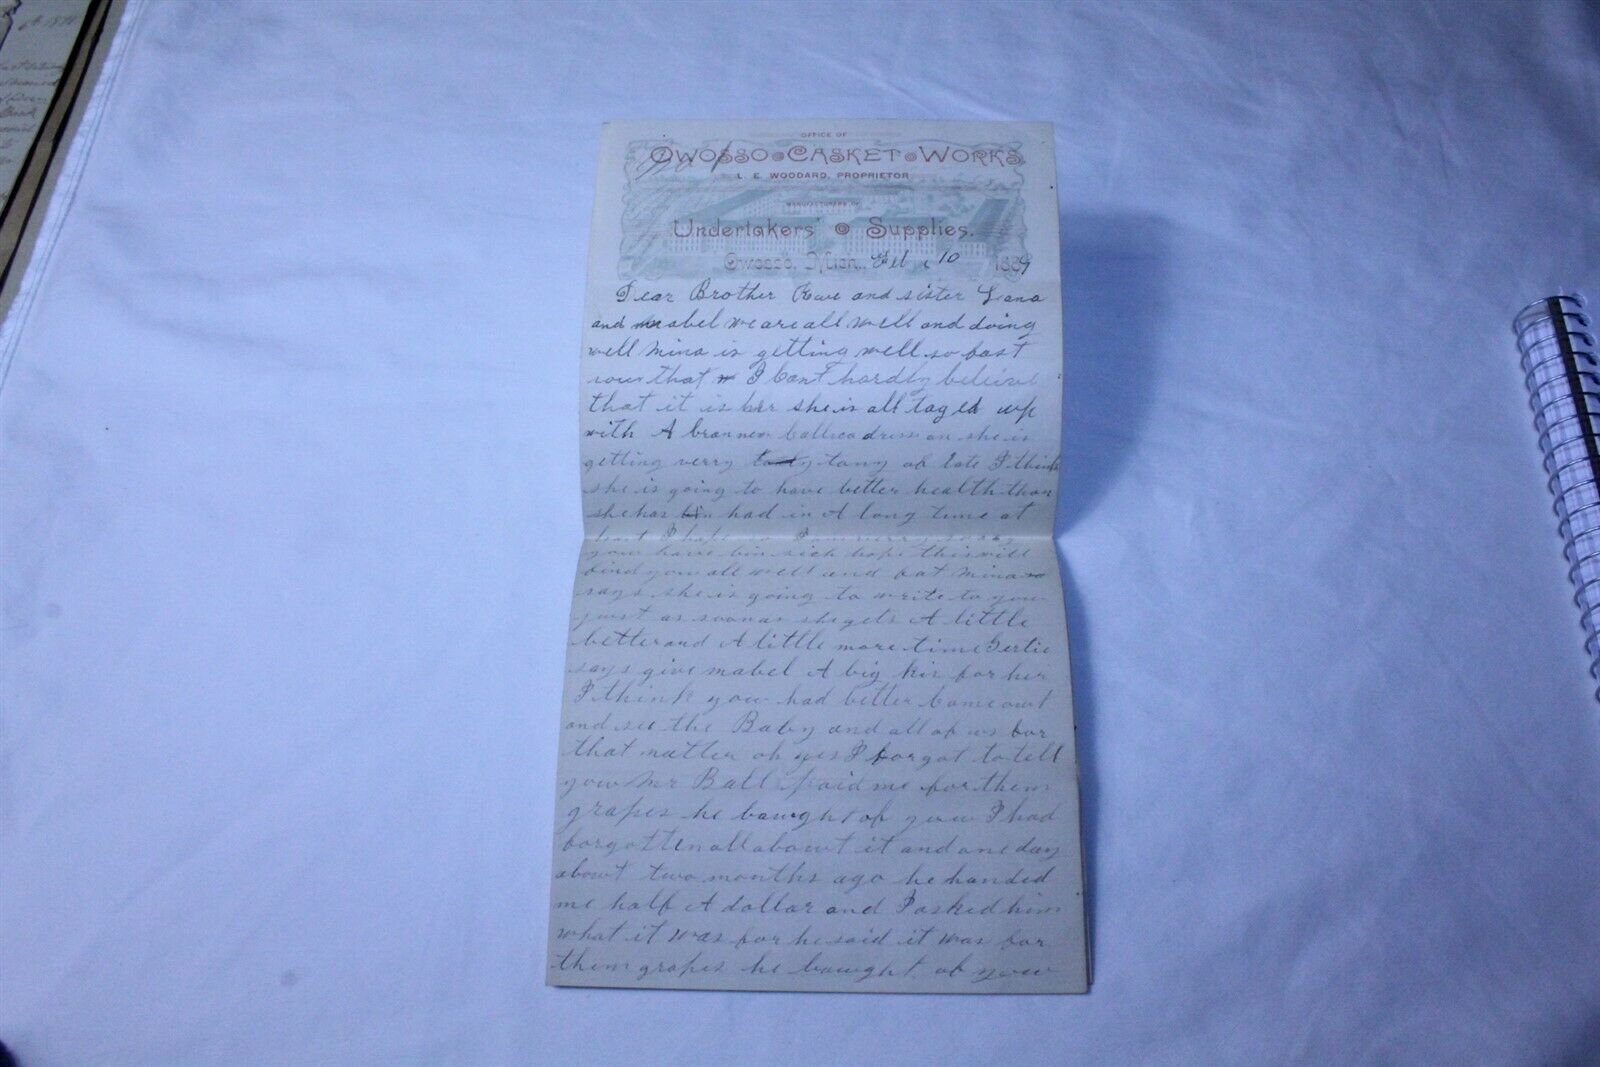 OFFICE OF
OWOSSO CASKET WORKS
L. E. WOODARD, PROPRIETOR
MANUFACTURERS OF
Undertakers' Supplies.
Owosso, Mich., Feb 10 1889
Dear Brother and sister
and mabel we are all well and doing
well Mina is getting well so fast
now that I Cant hardly beleive
that it is her she is all taged up
with A bran new Callico dress on she is
getting verry tony of late I think
she is going to have better health than
she has had in A long time at
least I hope so I am verry sorry
you have bin sick hope this will
find you all well and fat Mina
says she is going to write to you
just as soon as she gets A little
better and A little more time Gertie
says give mabel A big kis for her
I think you had better Come out
and see the Baby and all of us for
that matter oh yes I forgot to tell
you Mr Ball paid me for them
grapes he baught of you I had
forgotten all about it and one day
about two months ago he handed
me half A dollar and I asked him
what it was for he said it was for
them grapes he baught of you